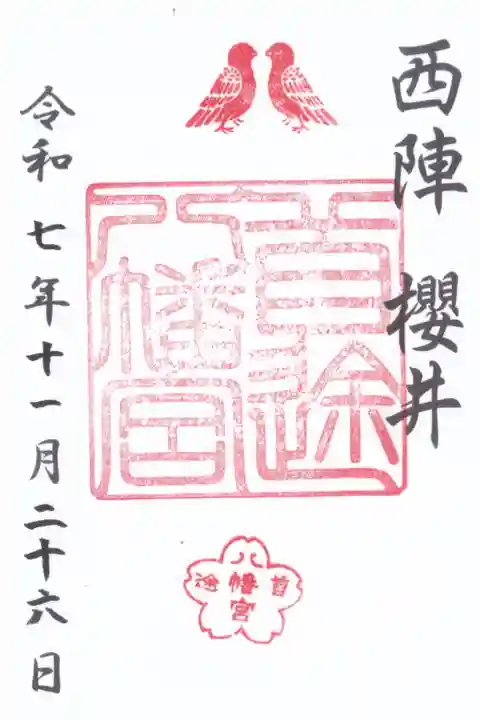 西陣 櫻井
首途
八幡宮
首途
八幡宮
令和七年十一月二十六日